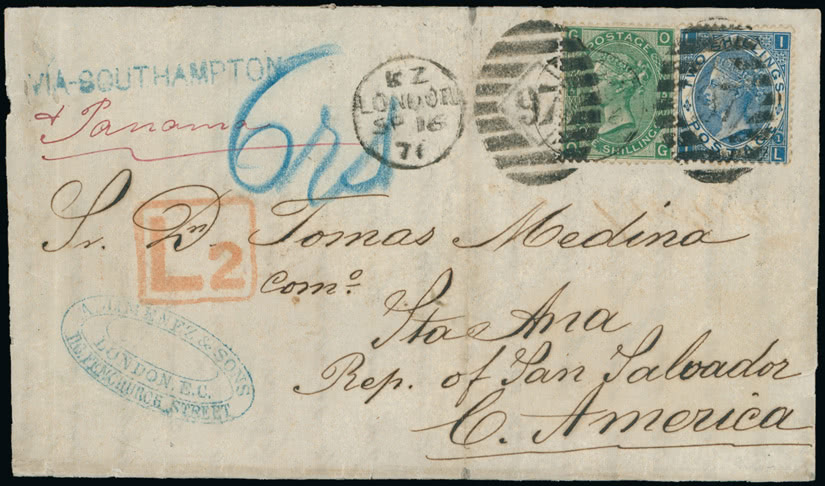 VIA-SOUTHAMPTON
& Panama
6rs
KZ
LONDON
SP 16
71
97
G O
POSTAGE
SHILLING
O G
I
TWO SHILLINGS
POSTAGE
L
97
L2
Sr. Dn. Tomas Medina
como.
Sta Ana
Rep. of San Salvador
C. America
& SONS
LONDON. E.C.
FENCHURCH STREET